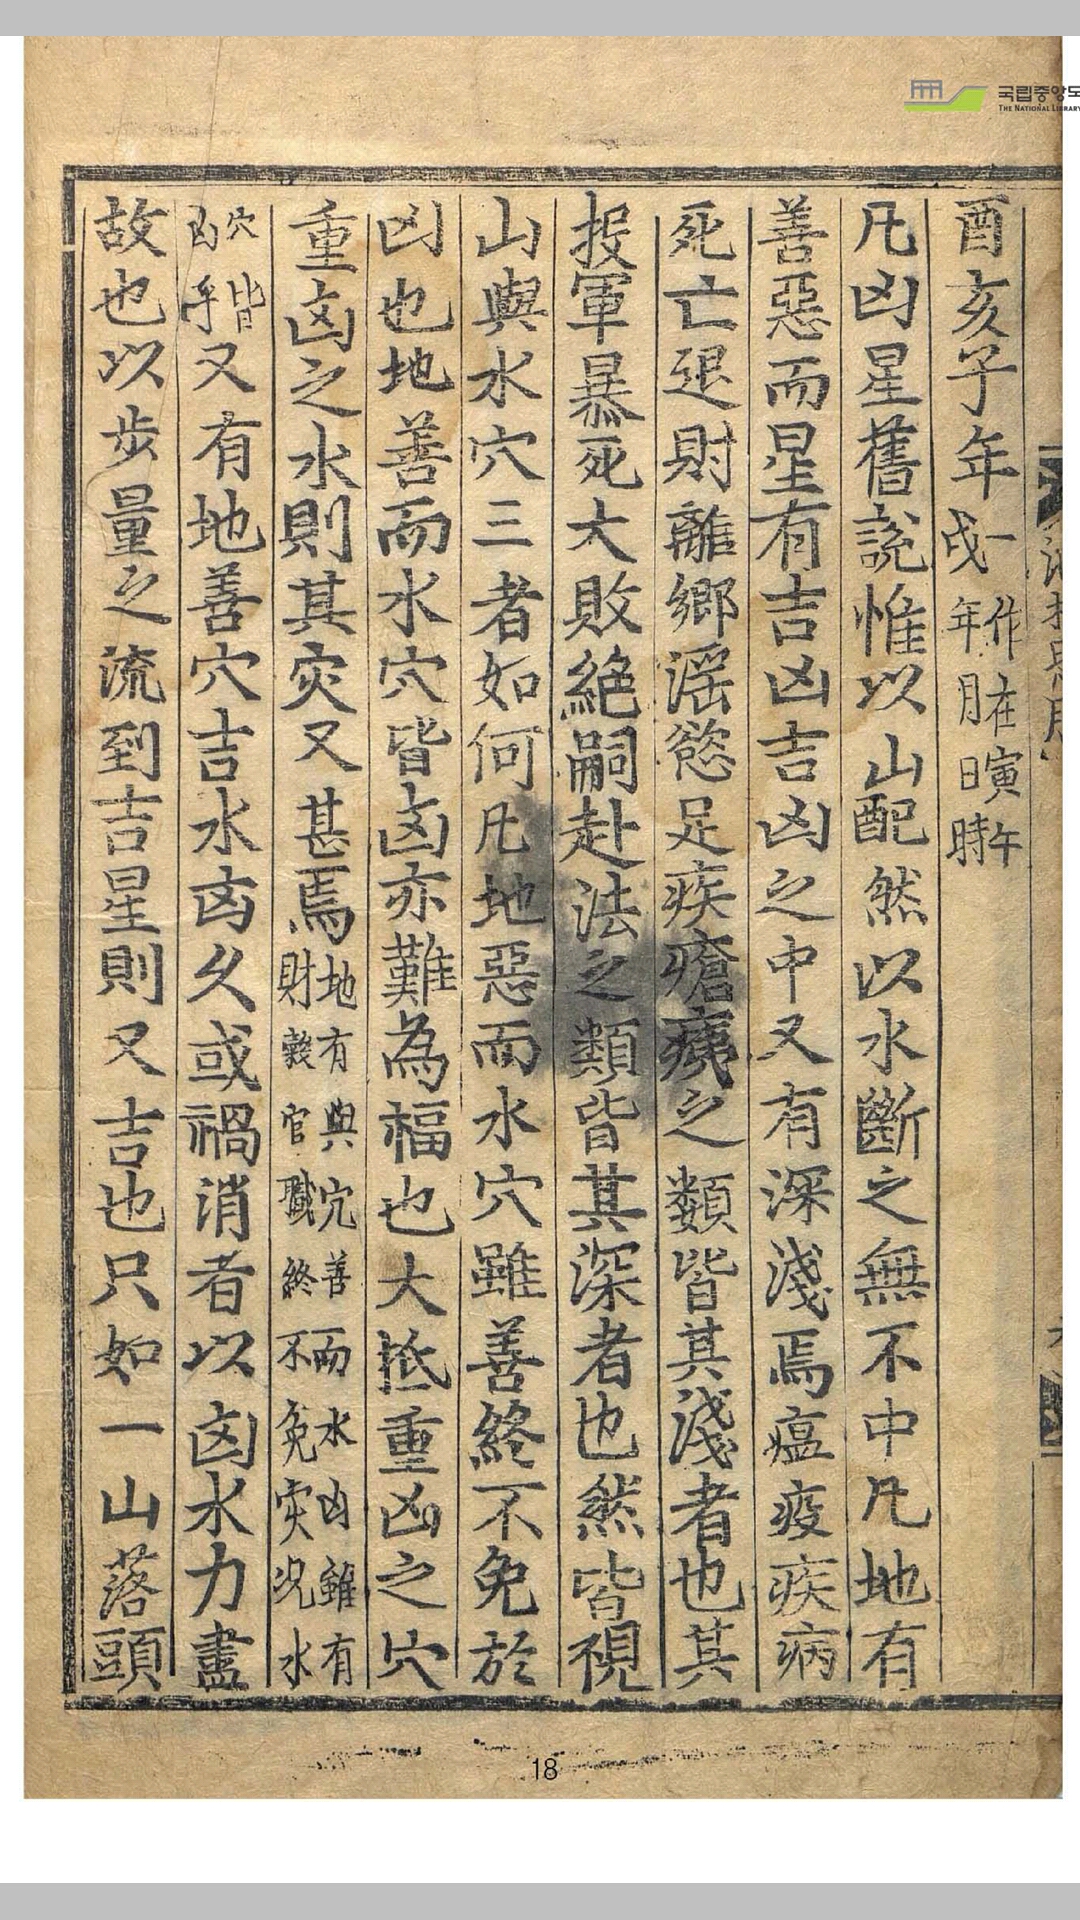 국립중앙도
THE NATIONAL LIBRARY
酉亥子年一作在寅午戌年月日時
凡凶星舊說惟以山配然以水斷之無不中凡地有
善惡而星有吉凶吉凶之中又有深淺焉瘟疫疾病
死亡退財離鄉滛慾足疾瘡痍之類皆其淺者也其
投軍暴死大敗絕嗣赴法之類皆其深者也然皆視
山與水穴三者如何凡地惡而水穴雖善終不免於
凶也地善而水穴皆凶亦難為福也大抵重凶之穴
重凶之水則其灾又甚焉地有與穴善而水凶雖有財穀官職終不免灾况水
穴皆凶乎又有地善穴吉水凶久或禍消者以凶水力盡
故也以步量之流到吉星則又吉也只如一山落頭
18